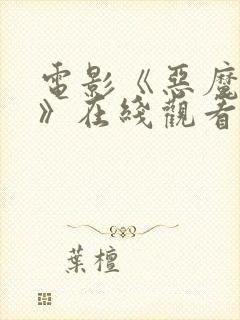 電影《惡魔
》在綫觀看
葉檀